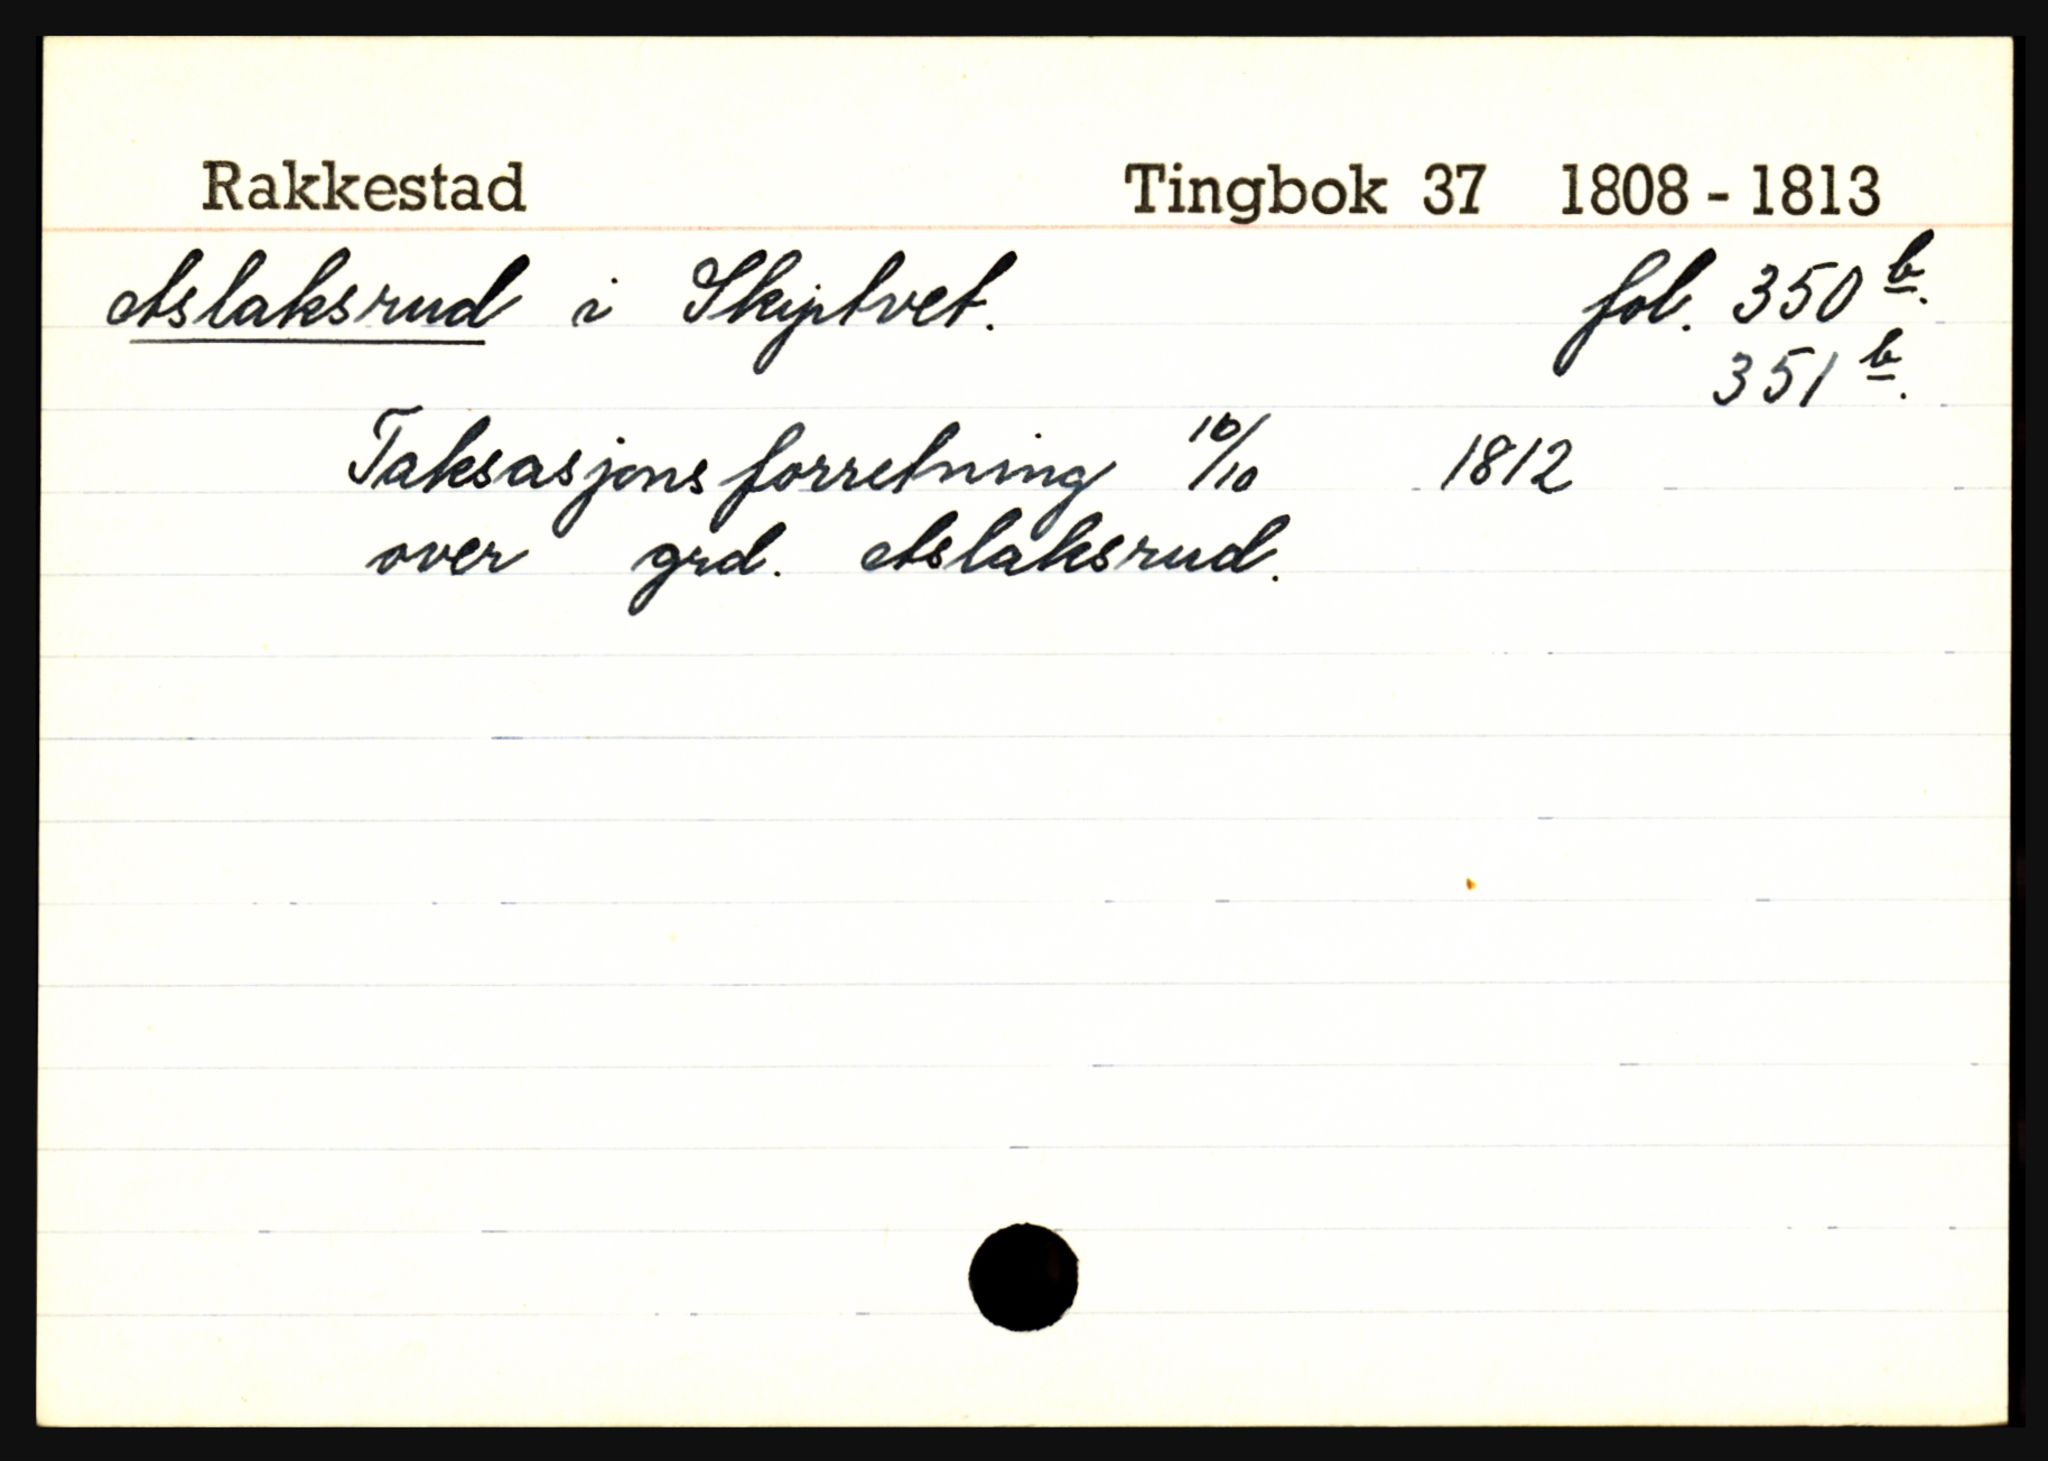 Rakkestad Tingbok 37 1808 - 1813
Aslaksrud i Skiptvet. fol. 350 b.
351 b.
Taksasjonsforretning 10/10 1812
over grd. Aslaksrud.